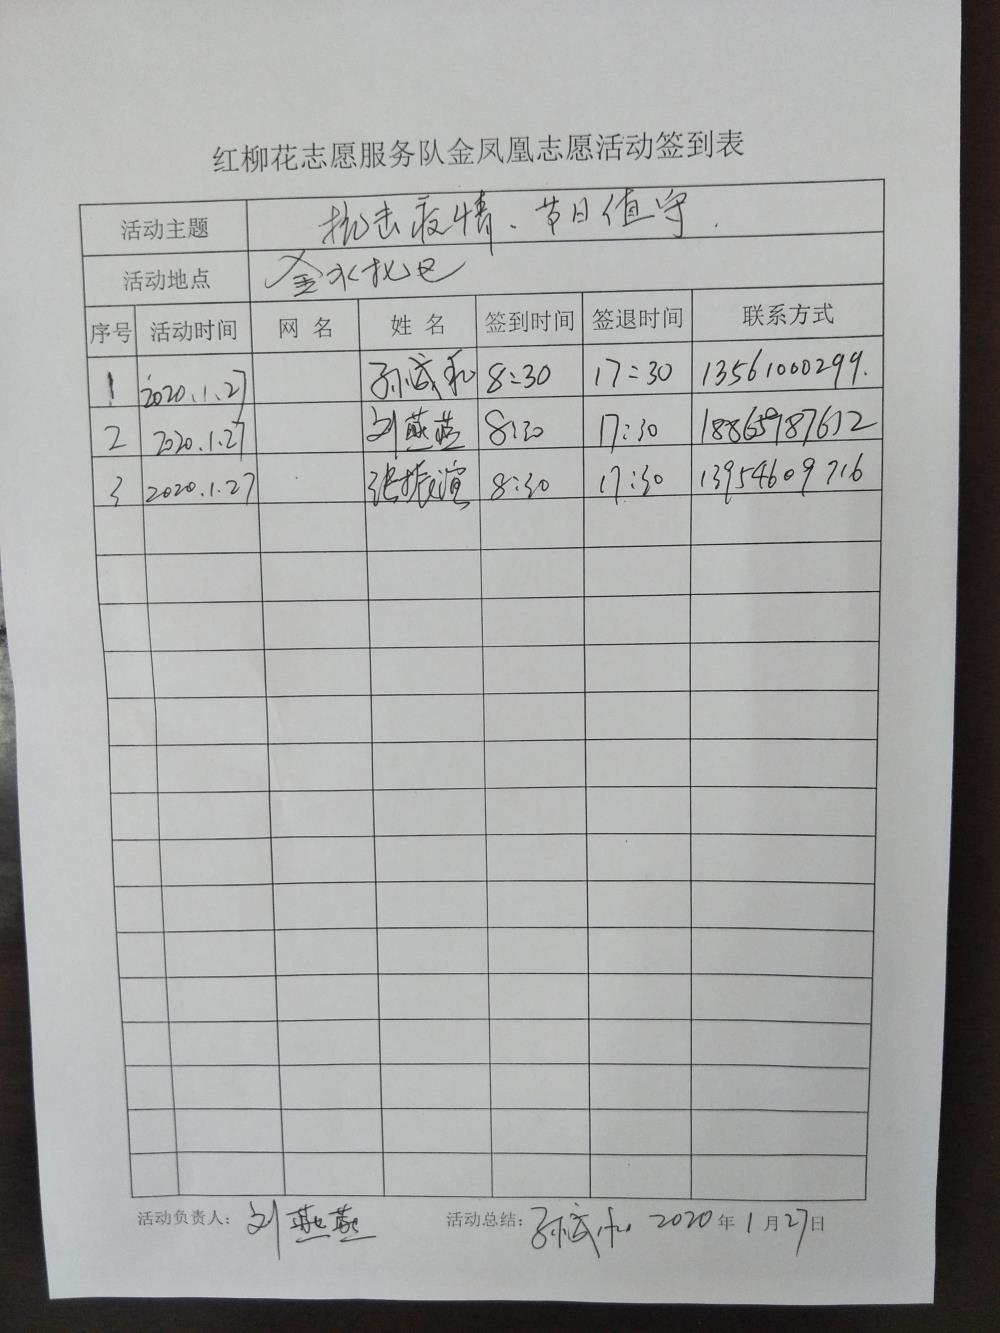 红柳花志愿服务队金凤凰志愿活动签到表
活动主题 抗击疫情、节日值守.
活动地点 金水社区
序号 活动时间 网 名 姓 名 签到时间 签退时间 联系方式
1 2020.1.27 孙成和 8:30 17:30 13561000299.
2 2020.1.27 刘燕燕 8:30 17:30
3 2020.1.27 张振谊 8:30 17:30 13954609716
活动负责人: 刘燕燕 活动总结: 孙成和 2020年1月27日